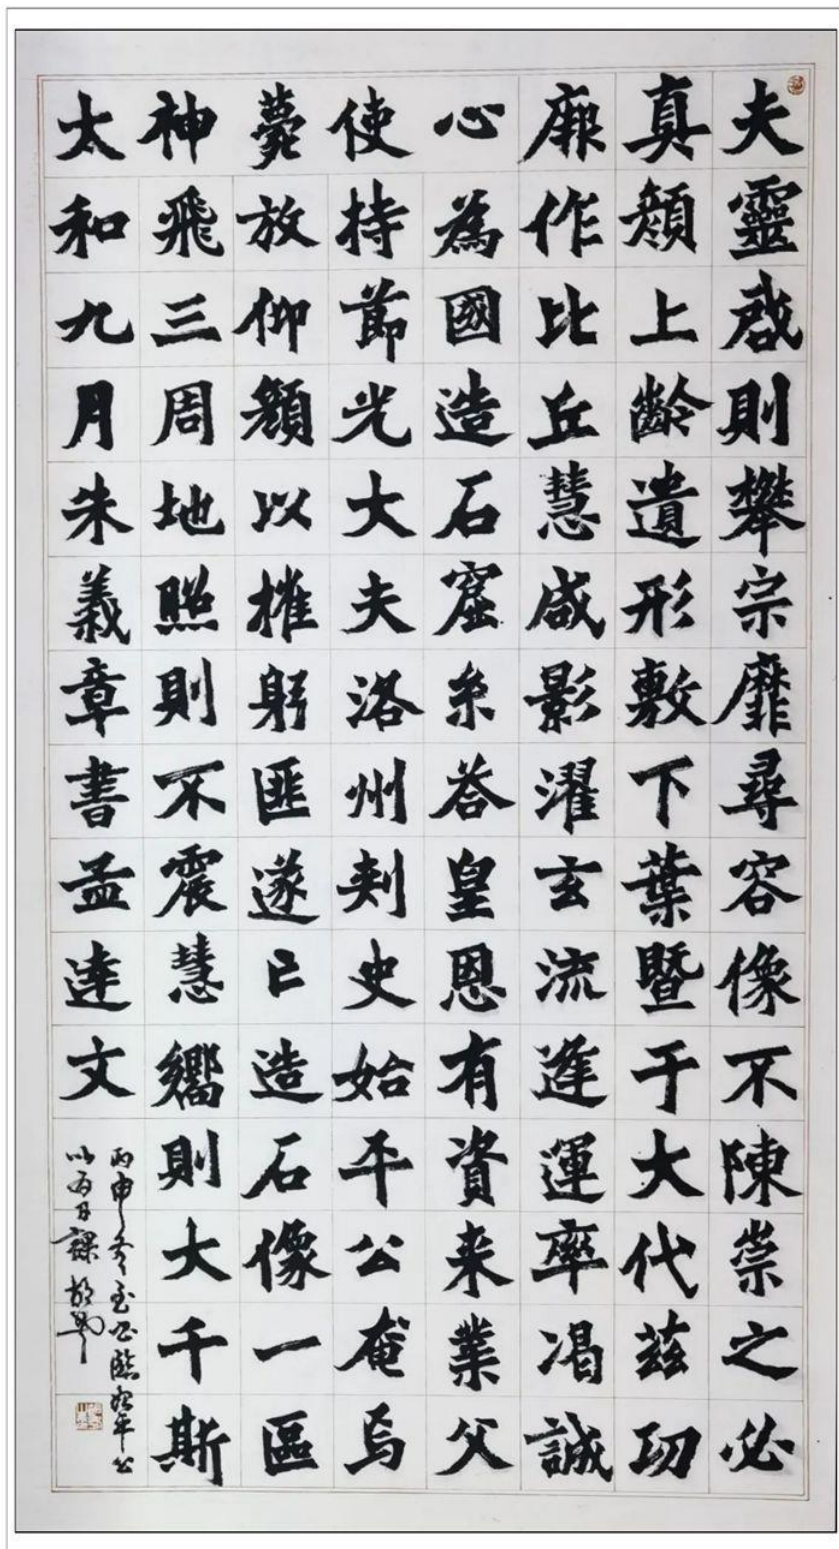 夫靈啟則攀宗靡尋容像不陳崇之必
真顏上齡遺形敷下葉暨于大代茲功
厥作比丘慧成影濯玄流逢運率渴誠
心為國造石窟系答皇恩有資来業父
使持節光大夫洛州刺史始平公奄焉
薨放仰顏以摧躬匪遂亡造石像一區
神飛三周地照則不震慧嚮則大千斯
太和九月朱義章書孟達文
丙申冬至臨始平公
以為日課